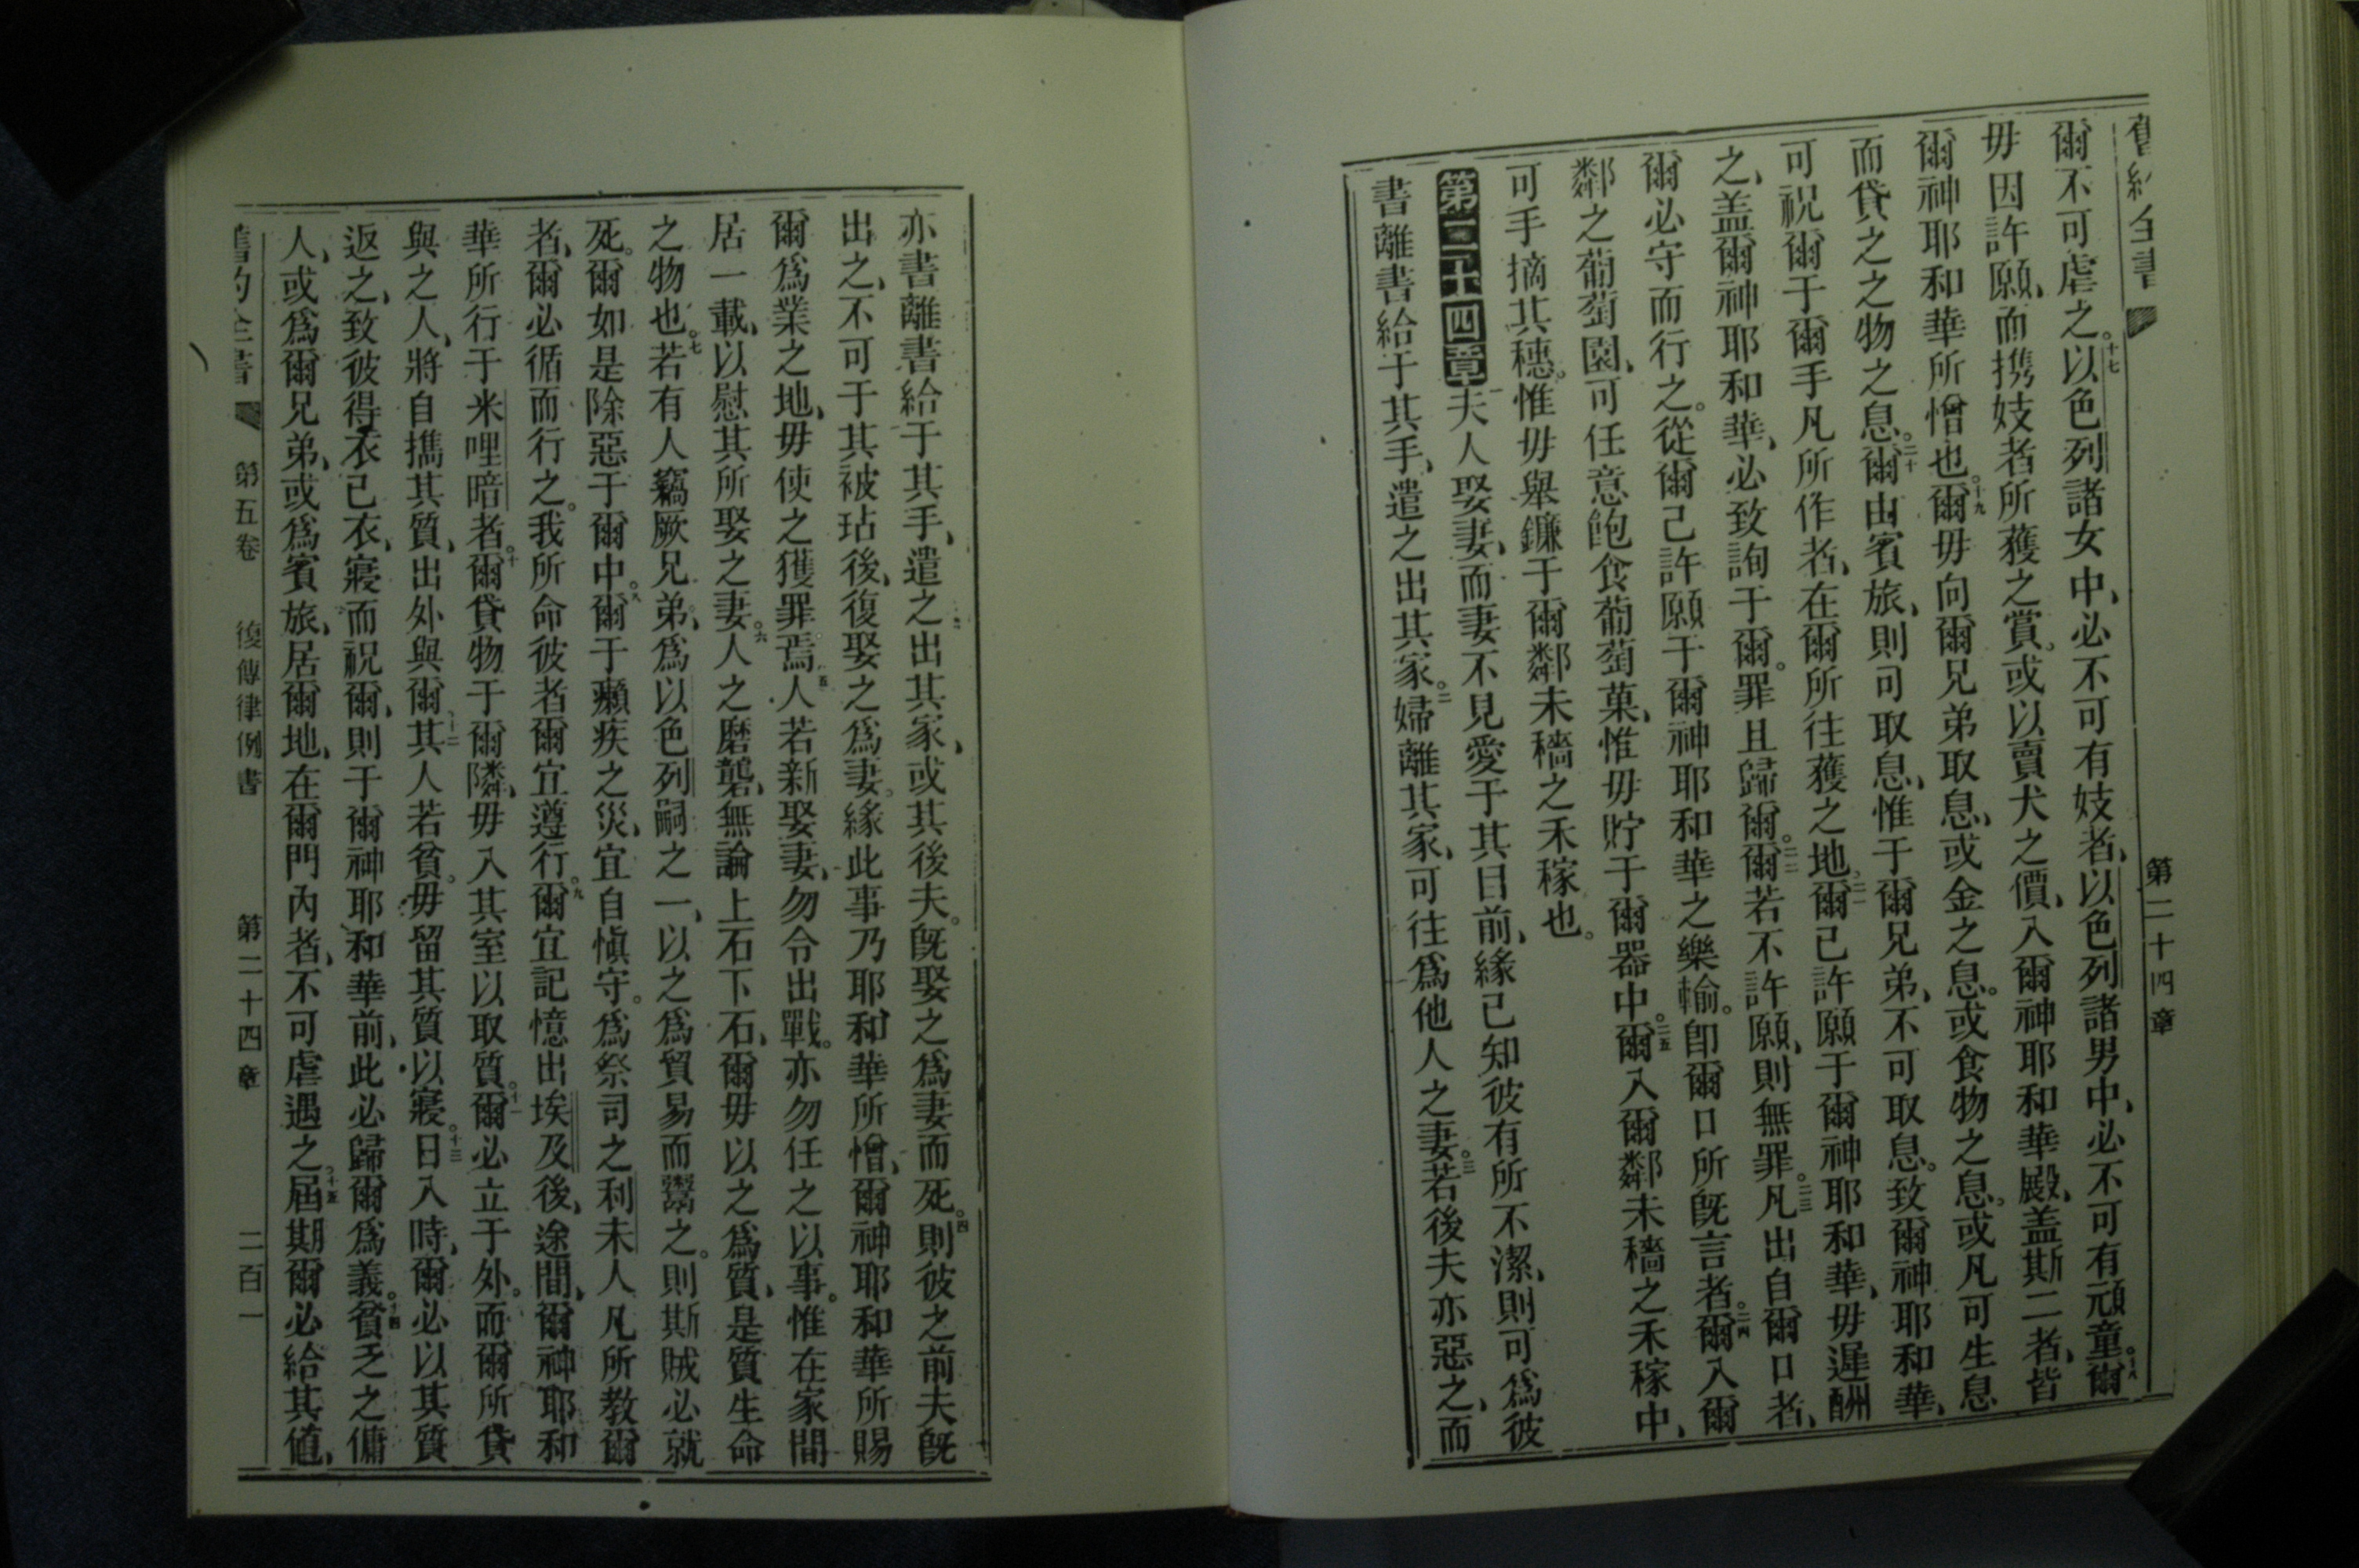 舊約全書 第二十四章
爾不可虐之。十七以色列諸女中、必不可有妓者、以色列諸男中、必不可有頑童。十八爾
毋因許願、而携妓者所獲之賞。或以賣犬之價、入爾神耶和華殿、盖斯二者、皆
爾神耶和華所憎也。十九爾毋向爾兄弟取息、或金之息。或食物之息。或凡可生息
而貸之之物之息。二十爾由賓旅、則可取息、惟于爾兄弟、不可取息。致爾神耶和華、
可祝爾于爾手凡所作者、在爾所往獲之地。二一爾已許願于爾神耶和華、毋遲酬
之、盖爾神耶和華、必致詢于爾。罪且歸爾。二二爾若不許願、則無罪。二三凡出自爾口者、
爾必守而行之。從爾己許願于爾神耶和華之樂輸。卽爾口所旣言者。二四爾入爾
鄰之葡萄園、可任意飽食葡萄菓、惟毋貯于爾器中。二五爾入爾鄰未穡之禾稼中、
可手摘其穗。惟毋舉鐮于爾鄰未穡之禾稼也。
第二十四章 一夫人娶妻、而妻不見愛于其目前、緣己知彼有所不潔、則可爲彼
書離書給于其手、遣之出其家。二婦離其家、可往爲他人之妻。三若後夫亦惡之、而
亦書離書給于其手、遣之出其家、或其後夫。旣娶之爲妻而死。四則彼之前夫旣
出之、不可于其被玷後、復娶之爲妻。緣此事乃耶和華所憎、爾神耶和華所賜
爾爲業之地、毋使之獲罪焉。五人若新娶妻、勿令出戰。亦勿任之以事。惟在家間
居一載、以慰其所娶之妻。六人之磨礱、無論上石下石、爾毋以之爲質、是質生命
之物也。七若有人竊厥兄弟、爲以色列嗣之一、以之爲貿易而鬻之。則斯賊必就
死。爾如是除惡于爾中。八爾于癩疾之災、宜自愼守。爲祭司之利未人凡所教爾
者、爾必循而行之。我所命彼者爾宜遵行。九爾宜記憶出埃及後、途間、爾神耶和
華所行于米哩暗者。十爾貸物于爾隣、毋入其室以取質。十一爾必立于外。而爾所貸
與之人、將自擕其質、出外與爾。十二其人若貧。毋留其質以寢。十三日入時、爾必以其質
返之、致彼得衣己衣、寢而祝爾、則于爾神耶和華前、此必歸爾爲義。十四貧乏之傭
人、或爲爾兄弟、或爲賓旅、居爾地、在爾門內者、不可虐遇之。十五屆期爾必給其値、
舊約全書 第五卷 復傳律例書 第二十四章 二百一